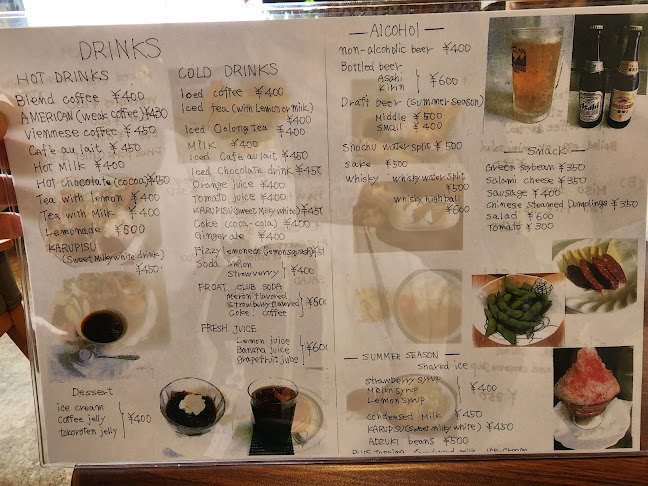 DRINKS
HOT DRINKS
Blend coffee ¥400
AMERICAN (weak coffee) ¥430
Viennese coffee ¥450
Cafè au lait ¥450
Hot milk ¥400
Hot chocolate (cocoa) ¥450
Tea with lemon ¥400
Tea with Milk ¥400
Lemonade ¥600
KARUPISU
(Sweet Milky white drink)
¥450
Dessert
ice cream
coffee jelly
tokoroten jelly
¥400
COLD DRINKS
Iced coffee ¥400
Iced tea (with Lemon or milk)
¥400
Iced Oolong tea ¥400
Milk ¥400
Iced Cafe au lait ¥450
Iced Chocolate drink ¥450
Orange juice ¥400
Tomato juice ¥400
KARUPISU (Sweet Milky White) ¥450
Coke (coca-cola) ¥400
Gingerale ¥400
Fizzy lemonade (lemon squash)
Soda melon
Strewverry
¥400
FROAT CLUB SODA
Meron flavored
Strawberry flavored
Coke / coffee
¥600
FRESH JUICE
Lemon juice
Banana juice
grapefruit juice
¥600
Alcohol
non-alcoholic beer ¥400
Bottled beer
Asahi
Kirin
¥600
Draft beer (summer season)
Middle ¥500
small ¥400
Shochu water split ¥500
sake ¥500
whisky whisky water split
¥500
whisky high ball
¥600
Snack
Green soybean ¥350
Salami cheese ¥350
Sausage ¥400
Chinese Steamed Dumplings ¥350
Salad ¥600
Tomato ¥300
SUMMER SEASON
shared ice
strawberry syrup
Melon syrup
Lemon syrup
¥400
condensed milk ¥450
KARUPISU (sweet milky white) ¥450
ADZUKI beans ¥500